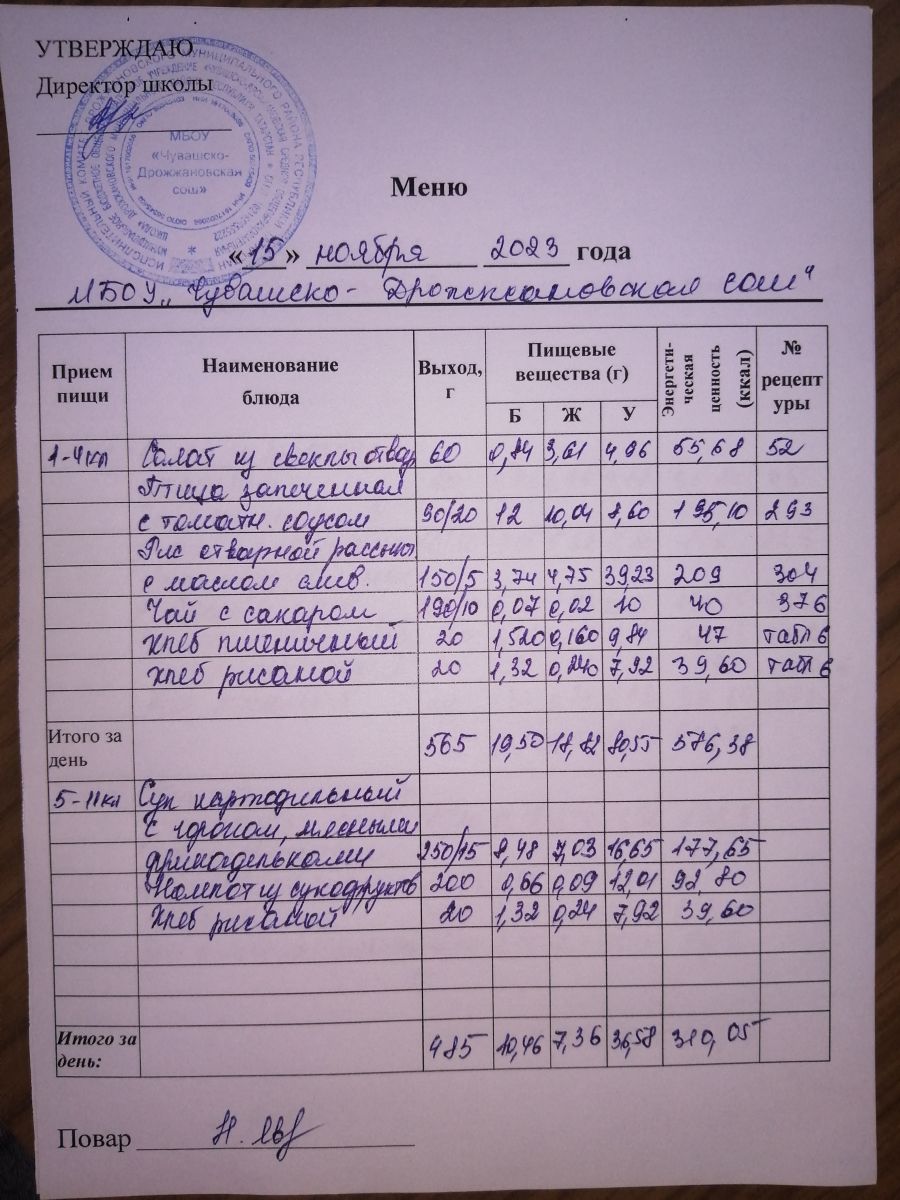 УТВЕРЖДАЮ
Директор школы
МБОУ
«Чувашско-
Дрожжановская
сош»
Меню
«15» ноября 2023 года
МБОУ „Чувашско- Дрожжановская сош"
Прием пищи Наименование блюда Выход, г Пищевые вещества (г) Энергети-ческая ценность (ккал) № рецептуры
Б Ж У
1-4кл Салат из свеклы отвар 60 0,84 3,61 4,96 55,68 52
Птица запеченная
с томатн. соусом 90/20 12 10,04 8,60 195,10 293
Рис отварной рассып
с маслом слив. 150/5 3,74 4,75 39,23 209 304
Чай с сахаром 190/10 0,07 0,02 10 40 376
Хлеб пшеничный 20 1,520 0,160 9,84 47 табл 6
Хлеб ржаной 20 1,32 0,240 7,92 39,60 табл 6
Итого за день 565 19,50 18,82 80,55 586,38
5-11кл Суп картофельный
с горохом, мясными
фрикадельками 250/15 8,48 7,03 16,65 177,65
Компот из сухофруктов 200 0,66 0,09 12,01 92,80
Хлеб ржаной 20 1,32 0,24 7,92 39,60
Итого за день: 485 10,46 7,36 36,58 310,05
Повар